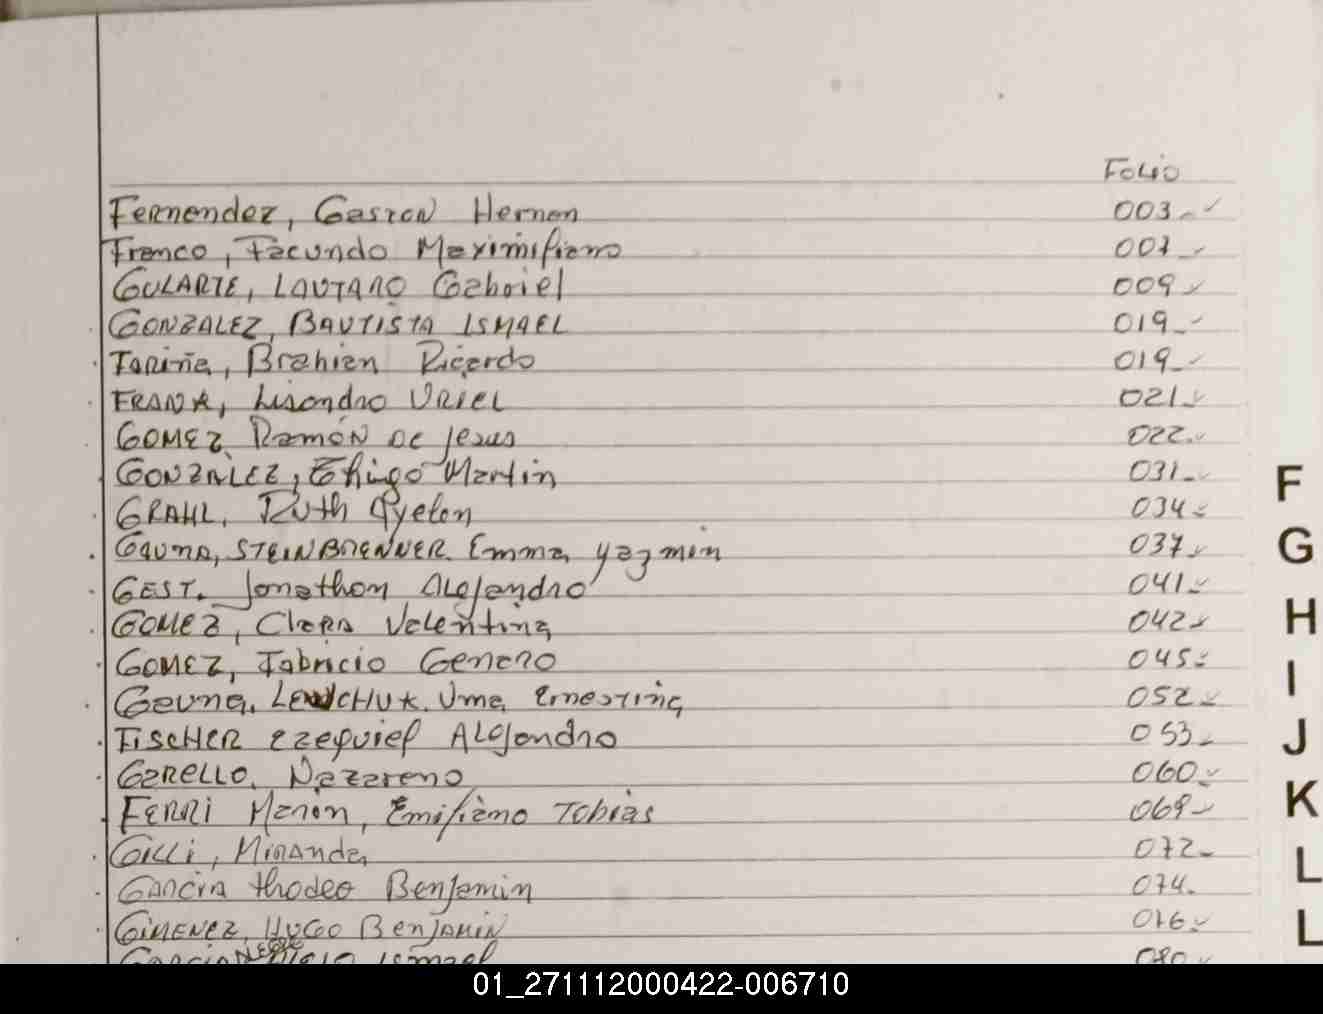 Folio
Fernendez, Gaston Hernen 003
Franco, Facundo Maximiliano 007
GULARTE, LAUTARO Gabriel 009
GONZALEZ, BAUTISTA ISMAEL 019
Fariña, Brahien Ricardo 019
FRANK, Lisandro URIEL 021
GOMEZ, Ramón De Jesus 022
GONZALEZ, Thiago Martin 031
GRAHL, Ruth Ayelen 034
GAUNA, STEINBRENNER Emma, Yazmin 037
GEST. Jonathan Alejandro 041
GOMEZ, Clara Valentina 042
GOMEZ, Fabricio Genaro 045
Gauna, LEWCHUK. Uma Ernestina 052
FISCHER Ezequiel Alejandro 053
GARELLO. Nazareno 060
FERRI Marin, Emiliano Tobias 069
GILLI, Miranda 072
GARCIA thadeo Benjamin 074
GIMENEZ, HUGO BENJAMIN 076
Ismael 080
F
G
H
I
J
K
L
L
01_271112000422-006710